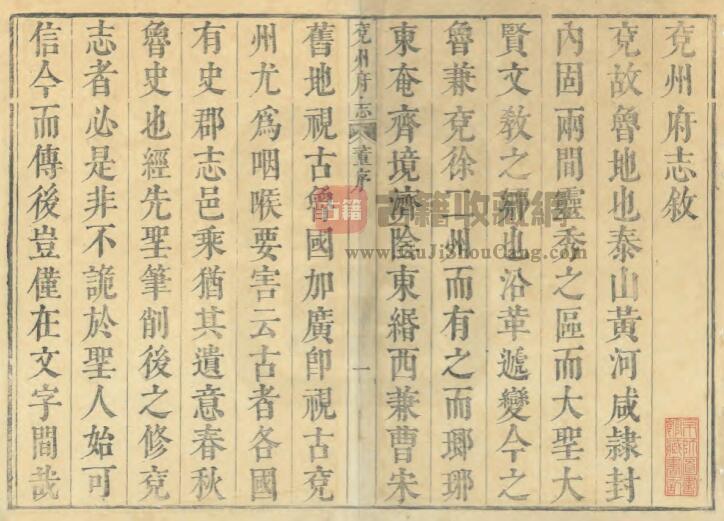 兗州府志敘
兗故魯地也泰山黃河咸隷封
內固兩間靈秀之區而大聖大
賢文教之鄉也沿革遞變今之
魯兼兗徐二州而有之而瑯琊
東奄齊境濟陰東緡西兼曹宋
兗州府志 董序 一
舊地視古魯國加廣卽視古兗
州尤爲咽喉要害云古者各國
有史郡志邑乘猶其遺意春秋
魯史也經先聖筆削後之修兗
志者必是非不詭於聖人始可
信今而傳後豈僅在文字間哉
古籍
古籍收藏網
www.GuJiShouCang.com